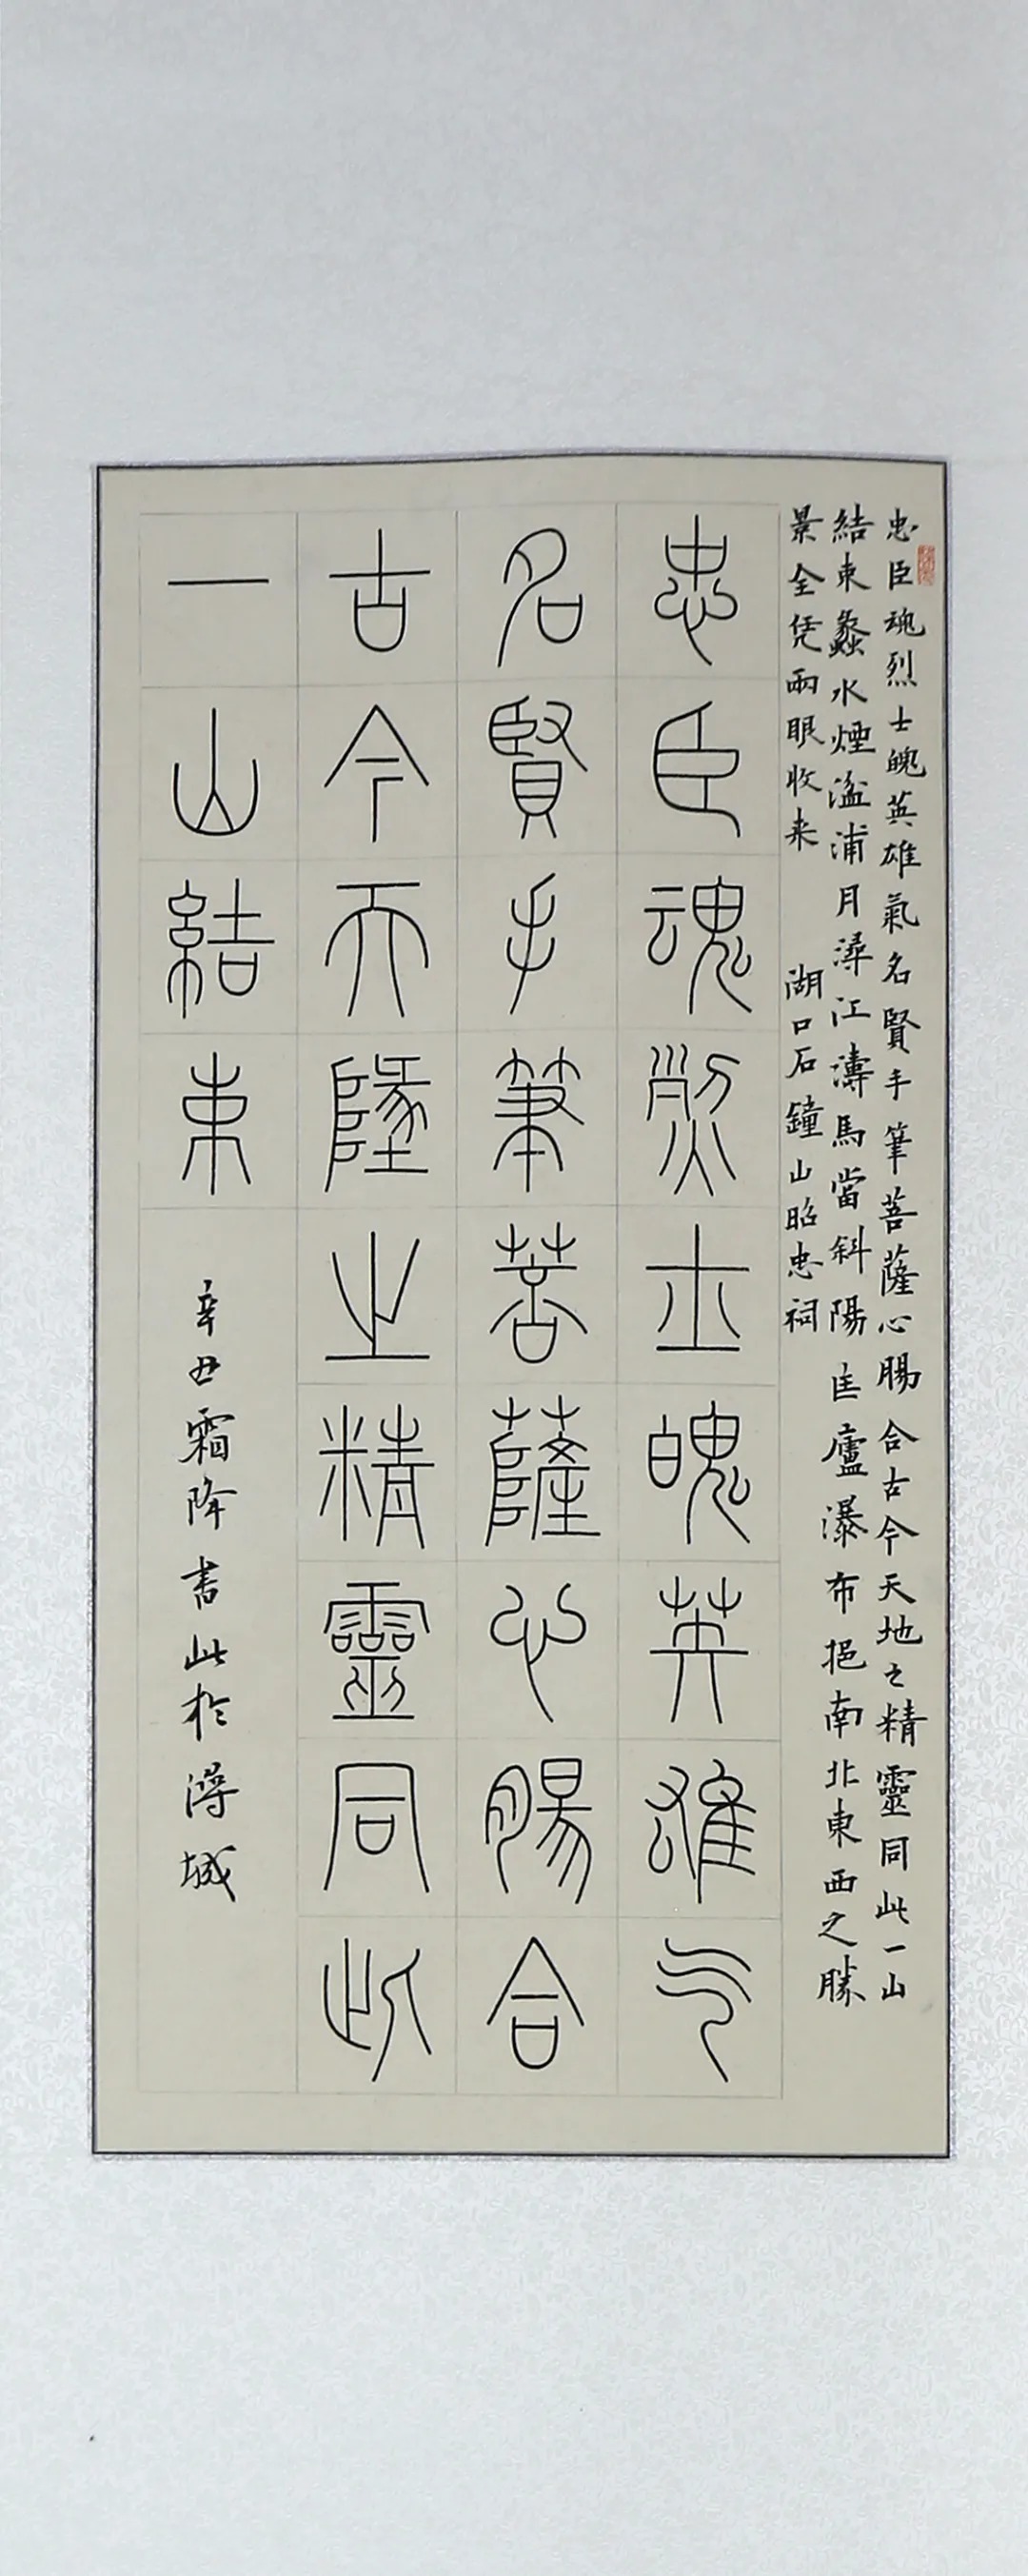 忠臣魂烈士魄英雄氣名賢手筆菩薩心腸合古今天地之精靈同此一山
結束蠡水煙湓浦月潯江濤馬當斜陽匡廬瀑布挹南北東西之勝
景全凭兩眼收来 湖口石鐘山昭忠祠
忠臣魂烈士魄英雄气
名賢手筆菩薩心腸合
古今天地之精靈同此
一山結束
辛丑霜降書此於潯城